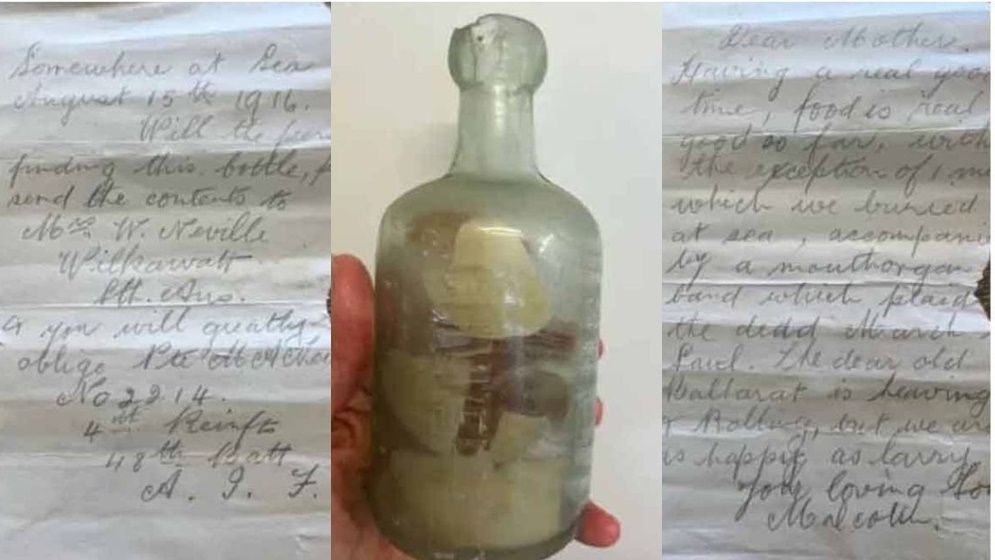 Somewhere at Sea
August 15th 1916.
Will the
finding this bottle,
send the contents to
Mrs W. Neville
Wilkawatt
Sth. Aus.
& you will greatly
oblige Pte
No 2214.
4th Reinfts
48th Batt
A. I. F.
Dear Mother.
Having a real good
time, food is real
good so far, with
the exception of 1
which we buried
at sea, accompani
by a mouthorgan
band which plaid
the dead March
The dear old
Ballarat is heaving
& Rolling, but we are
as happy as larry
Your loving Son
Malcolm.